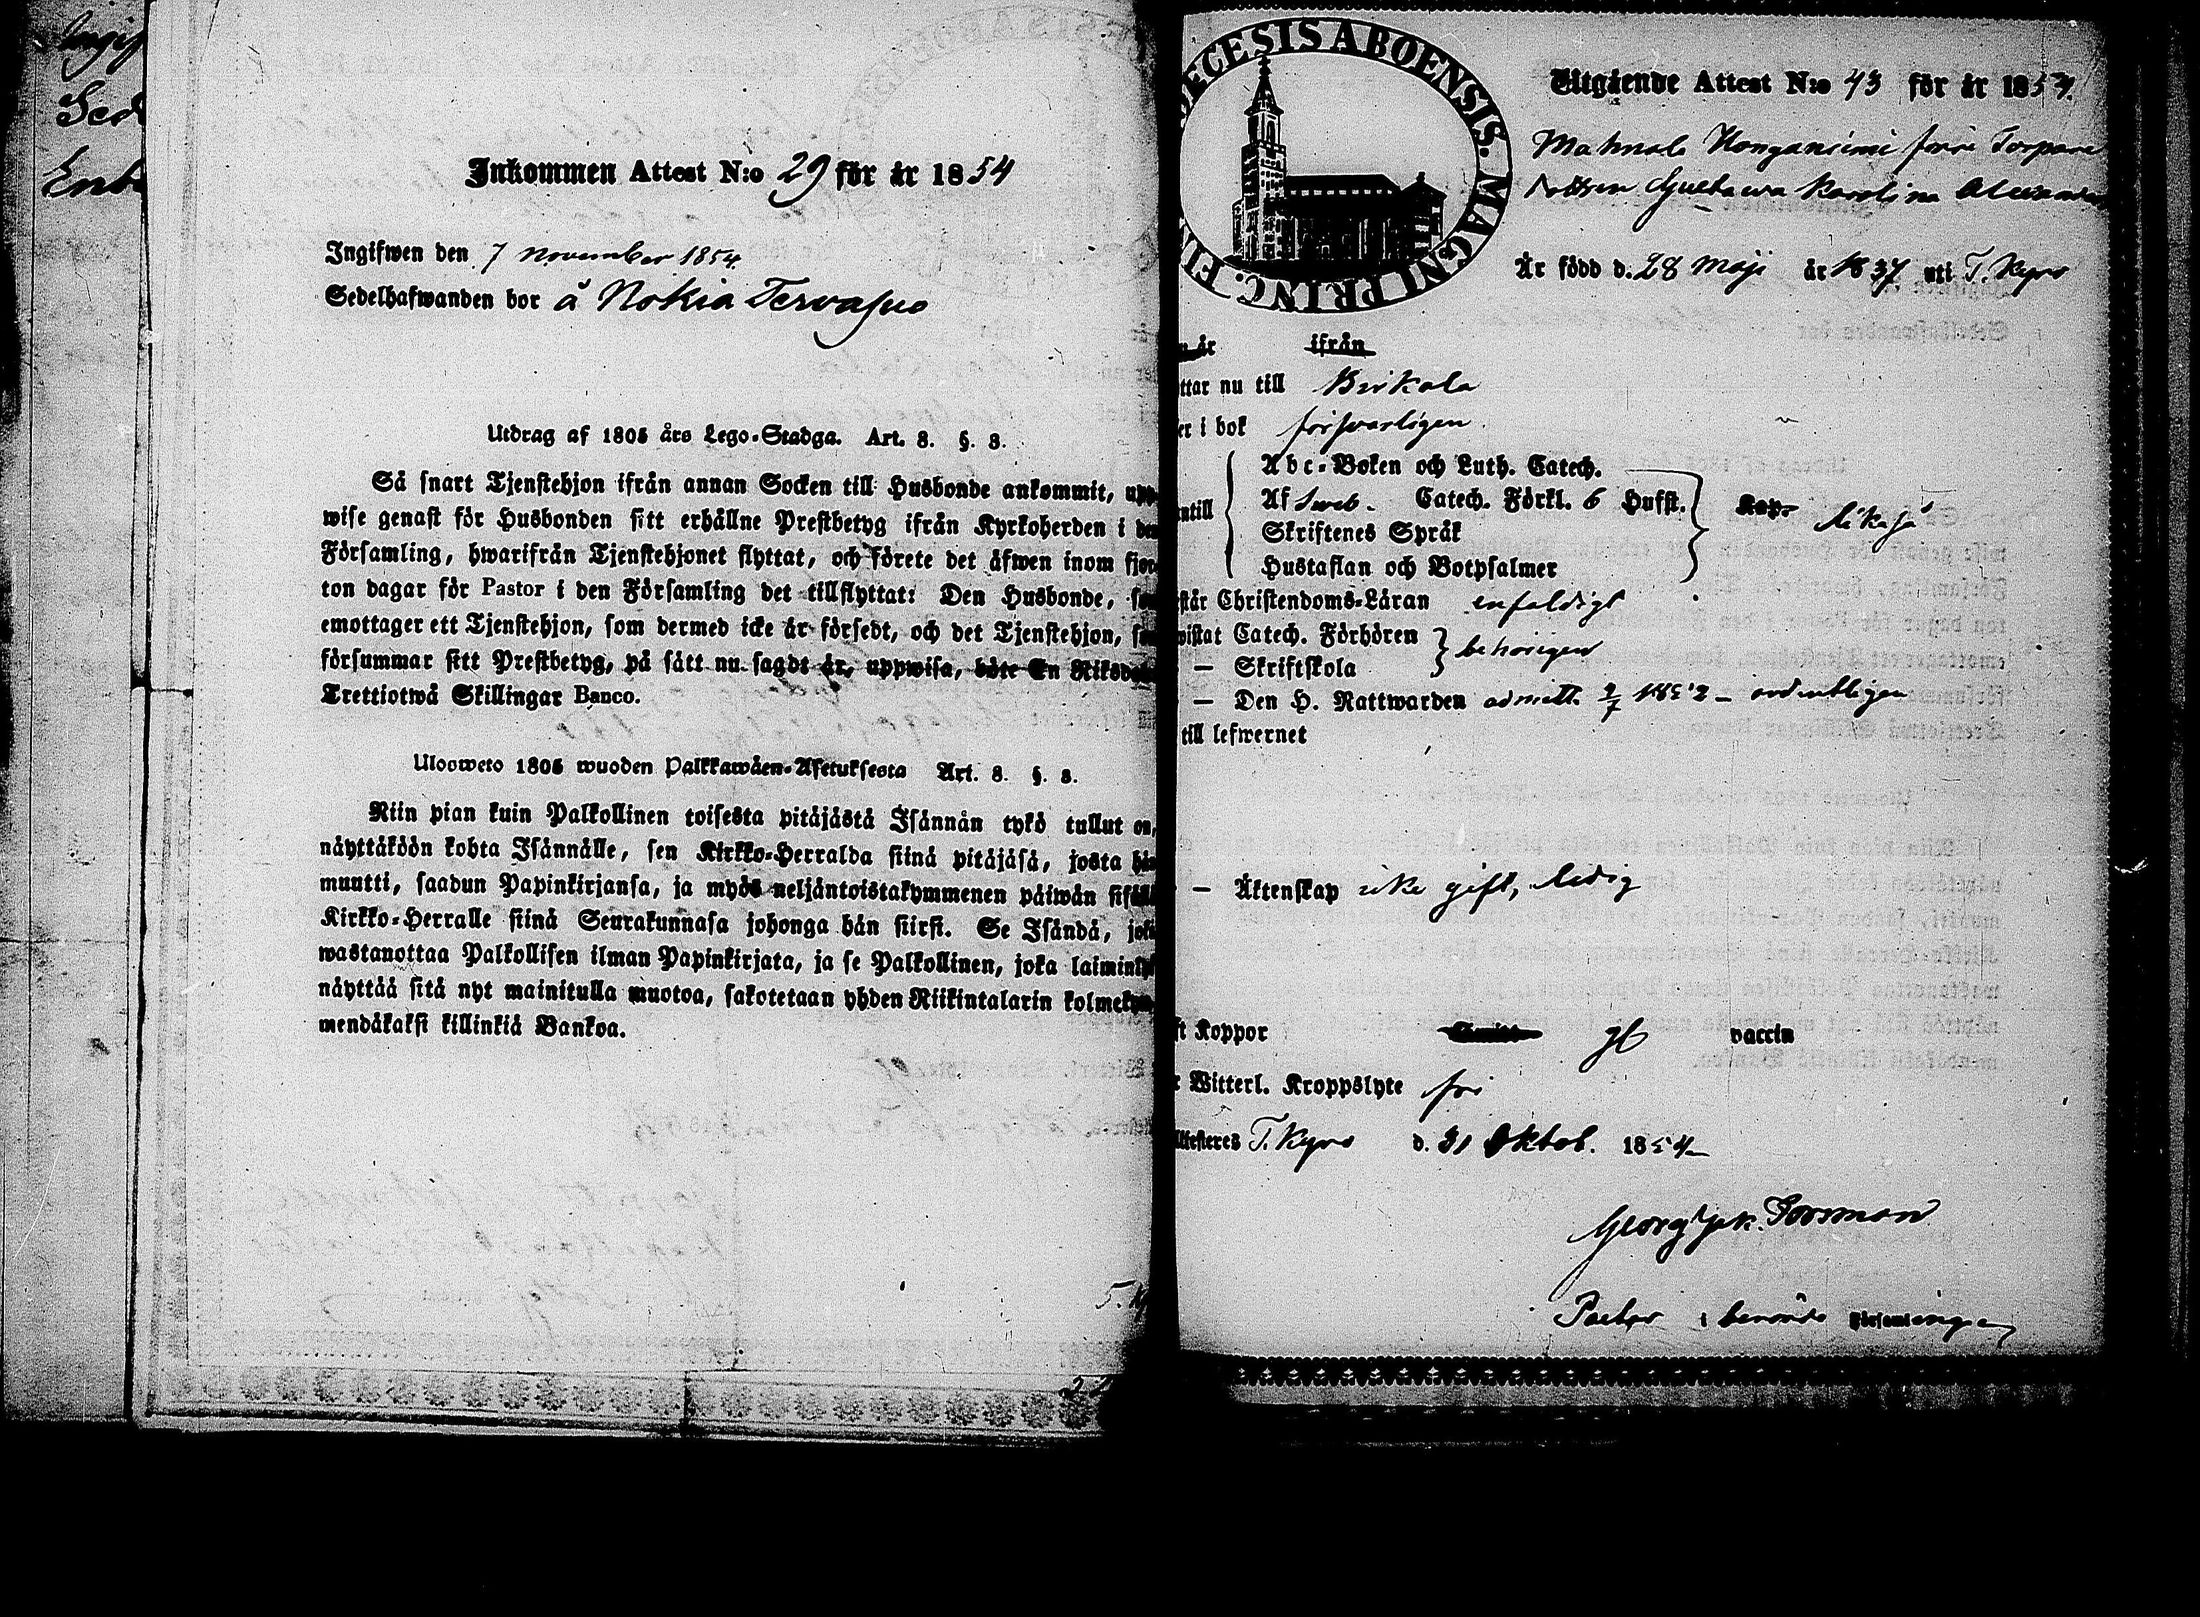 Inkommen Attest N:o 29 för år 1854
Ingifwen den 7 november 1854.
Sedelhafwanden bor å Nokia Tervasuo
Utdrag af 1805 års Lego-Stadga. Art. 8. §. 8.
Så snart Tjenstehjon ifrån annan Socken till Husbonde ankommit, upp-
wise genast för Husbonden sitt erhållne Prestbetyg ifrån Kyrkoherden i den
Församling, hwarifrån Tjenstehjonet flyttat, och förete det äfwen inom fjor-
ton dagar för Pastor i den Församling det tillflyttat: Den Husbonde, som
emottager ett Tjenstehjon, som dermed icke är försedt, och det Tjenstehjon, som
försummar sitt Prestbetyg, på sätt nu sagdt är, uppwisa, böte En Riksd
Trettiotwå Skillingar Banco.
Ulosweto 1805 wuoden Palkkawäen-Asetuksesta Art. 8. §. 8.
Niin pian kuin Palkollinen toisesta pitäjästä Isännän tykö tullut on,
näyttäköön kohta Isännälle, sen Kirkko-Herralda siinä pitäjäsä, josta hän
muutti, saadun Papinkirjansa, ja myös neljäntoistakymmenen päiwän sisällä
Kirkko-Herralle siinä Seurakunnasa johonga hän siirsi. Se Isändä, joka
wastanottaa Palkollisen ilman Papinkirjata, ja se Palkollinen, joka laiminly
näyttää sitä nyt mainitulla muotoa, sakotetaan yhden Riikintalarin kolmekym-
mendäkaksi killinkiä Bankoa.
ECESIS ABOENSIS. MAGNI PRINC. FI
Utgående Attest N:o 43 för år 1854.
Mahnala Honganiemi förre Torpare
dottren Gustawa Karolina Alexander
Är född d. 28 Maji år 1837 uti T. Kyro
n år ifrån
ttar nu till Birkala
er i bok försvarligen
Abc-Boken och Luth. Catech.
ntill Af Sweb. Catech. Förkl. 6 Hufst. Kap. likaså
Skriftenes Språk
Hustaflan och Botpsalmer
står Christendoms-Läran enfaldigt
wistat Catech. Förhören behörigen
— Skriftskola
— Den H. Nattwarden admitt. 2/7 1852 – ordentligen
till lefwernet
— Äktenskap icke gift, ledig
ft Koppor gt vaccin
r Witterl. Kroppslyte fri
ttesteres T. Kyro d. 31 Oktob. 1854
Georg Jak. Forsman
Pastor i berörde Församlingen